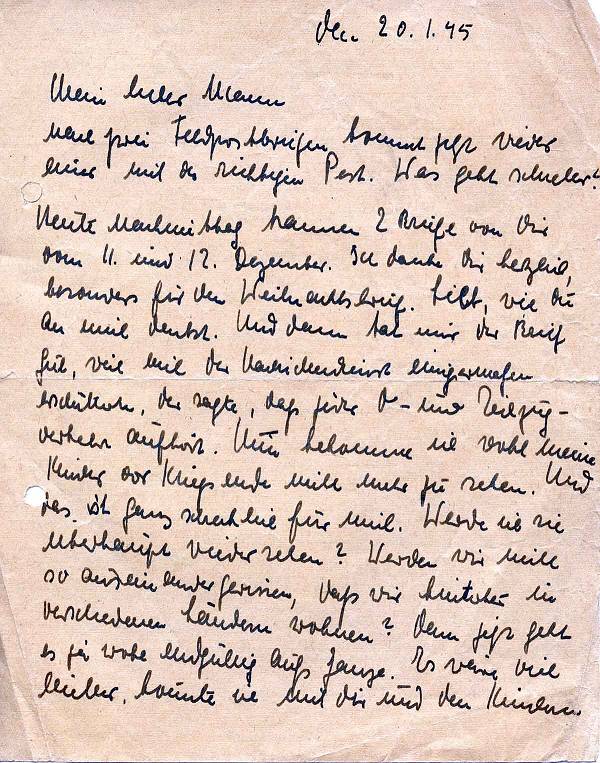 Den 20.1.45
Mein lieber Mann
nach zwei Feldpostbriefen kommt jetzt wieder
einer mit der richtigen Post. Was geht schneller?
Heute Nachmittag kamen 2 Briefe von Dir
vom 11. und 12. Dezember. Ich danke Dir herzlich,
besonders für den Weihnachtsbrief. Lieb, wie Du
an mich denkst. Und dann tat mir der Brief
gut, weil mich der Nachrichtendienst einigermaßen
erschütterte, der sagte, daß jeder D- und Eilzug-
verkehr aufhört. Nun bekomme ich wohl meine
Kinder vor Kriegsende nicht mehr zu sehen. Und
das ist ganz schrecklich für mich. Werde ich sie
überhaupt wiedersehen? Werden wir nicht
so auseinandergerissen, daß wir hinterher in
verschiedenen Ländern wohnen? Denn jetzt geht
es ja wohl endgültig aufs Ganze. Es wäre viel
leichter, könnte ich mit Dir und den Kindern